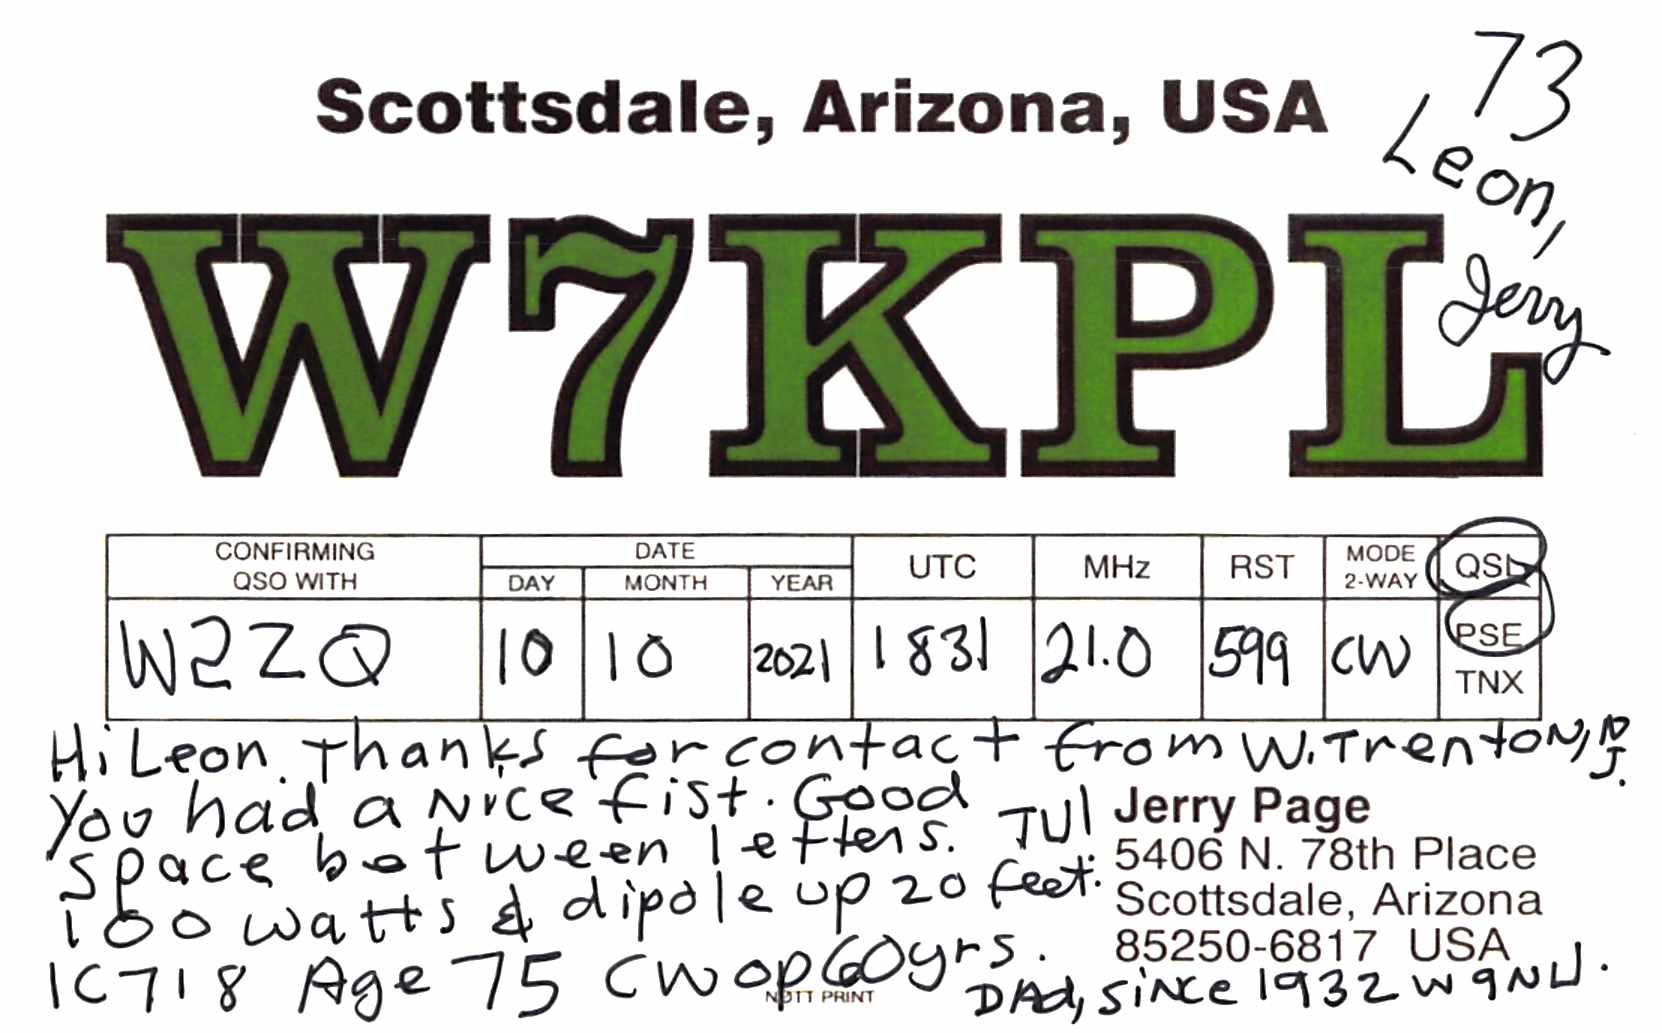 Scottsdale, Arizona, USA
73
Leon,
Jerry
W7KPL
CONFIRMING QSO WITH
DATE
DAY MONTH YEAR
UTC
MHz
RST
MODE 2-WAY
QSL
PSE
TNX
W2ZQ 10 10 2021 1831 21.0 599 CW
Hi Leon. Thanks for contact from W. Trenton, NJ.
You had a nice fist. Good
space between letters. TU!
100 watts & dipole up 20 feet.
IC718 Age 75 CW op 60yrs.
DAd, since 1932 W9NU.
Jerry Page
5406 N. 78th Place
Scottsdale, Arizona
85250-6817 USA
NOTT PRINT